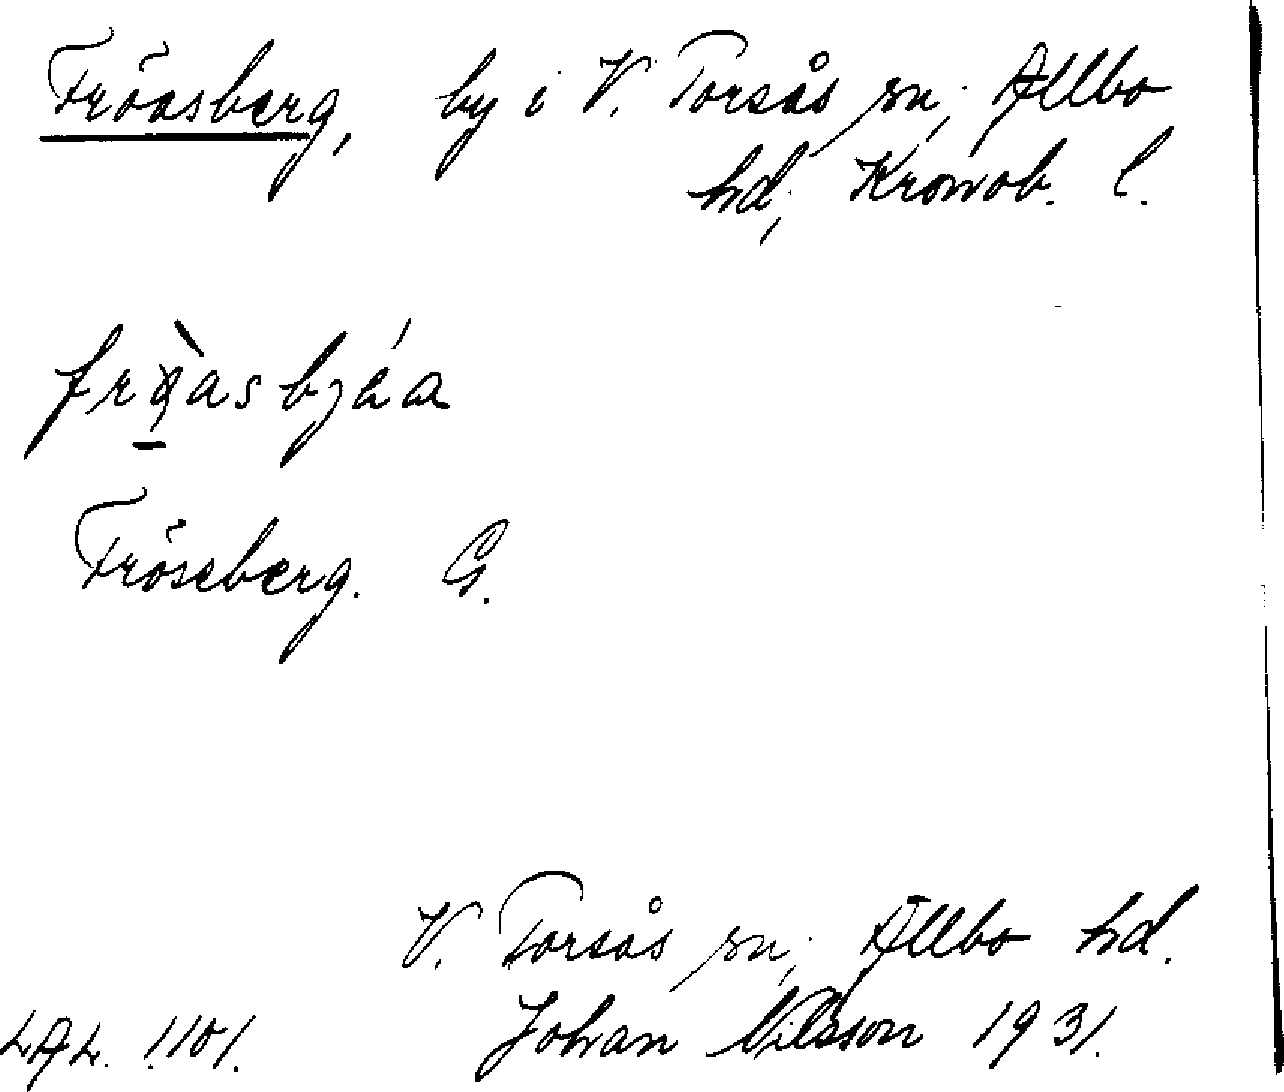 Fröasberg, by i V. Torsås sn, Allbo
hd, Kronob. l.
Fröseberg. G.
V. Torsås sn, Allbo hd.
Johan Nilsson 1931.